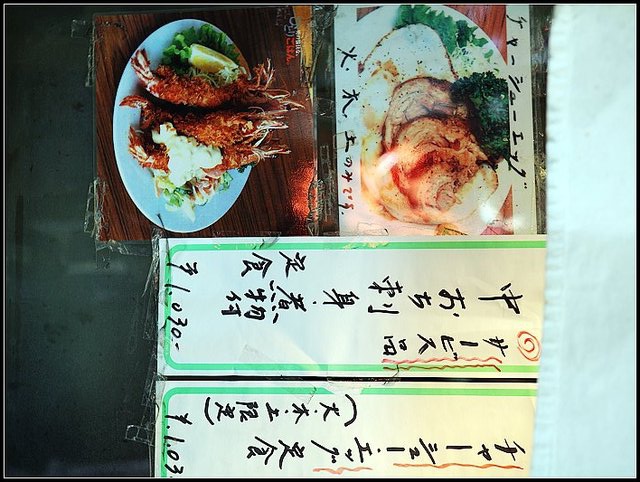 チャーシューエッグ
火、木、土のみです。
サービス品
中おち刺身・煮物付
定食
¥1,030.-
チャーシュー・エッグ定食
(火・木・土限定)
¥1,03